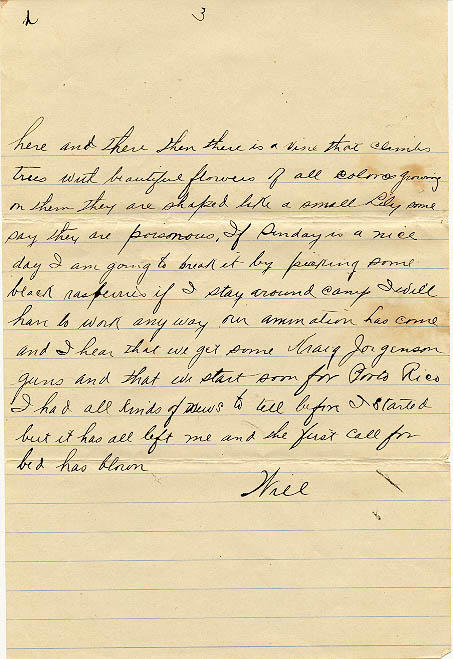 3
here and there then there is a vine that climbs
trees with beautiful flowers of all colores growing
on them they are shaped like a small Lily some
say they are poisonous. If Sunday is a nice
day I am going to break it by picking some
black rasberries if I stay around camp I will
han to work any way our ammation has come
and I hear that we get some Kraig Jorgenson
guns and that we start soon for Porto Rico
I had all kinds of news to tell before I started
but it has all left me and the first call for
bed has blown
Will